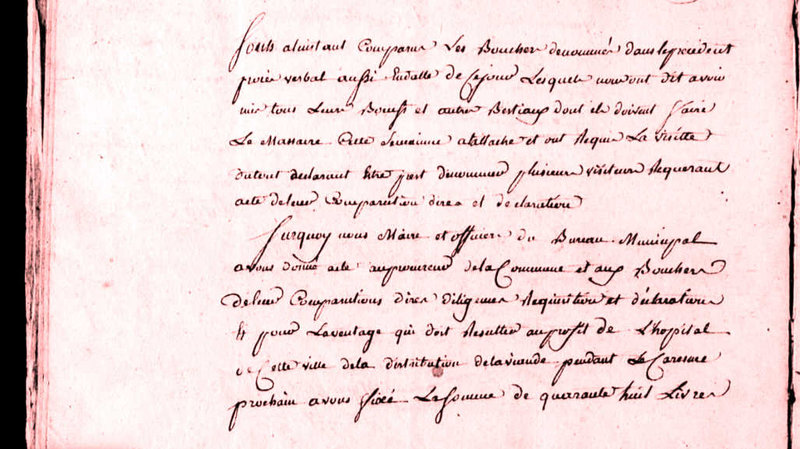 sont a linstant Comparus Les Bouchers denommés dans le precedent
procés verbal aussi Endatte de cejour Lesquels nous ont dit avoir
mis tous Leurs Boeufs et autres Bestiaux dont ils doivent faire
Le Massacre Cette Semainne alattache et ont Requis La visitte
dutout declarant Etre pret denommer plusieurs visiteurs Requerant
acte deleur Comparution dires et declarations
Surquoy nous Maire et officiers du Bureau Municipal
avons donné acte au procureur dela Commune et aux Bouchers
deleur Comparutions dires diligences Requisition et déclarations
Et pour Laventage qui doit Resulter au profit de L'hopital
de Cette ville dela distribution delaviande pendant Le Caresme
prochain avons fixé La Somme de quarante huit Livres